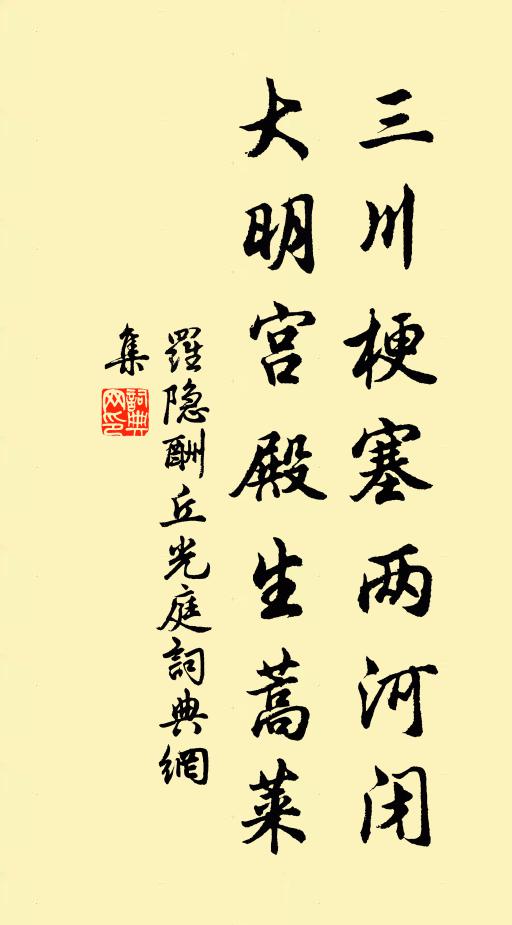 三川梗塞两河闭
大明宫殿生蒿莱
羅隐酬丘光庭詞典網
集
詞典
网印